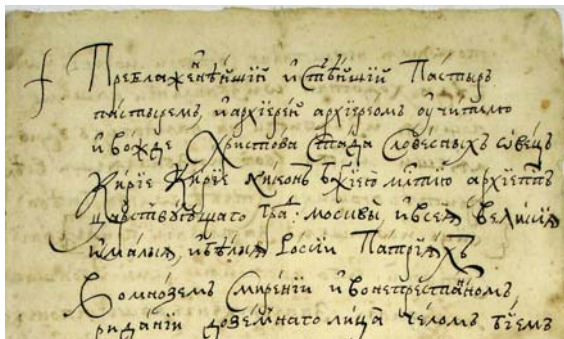 Преблаженнѣйшїй и҆ Ст҃ѣйшїй Пастырь
пастыремъ, и҆ а҆рхїере́й а҆рхїереомъ ᲂу҆чи́телю
и҆ во́жде Христо́ва Ста́да Слове́сныхъ ѡ҆ве́цъ
Ки́рїе Ки́рїе Ни́конъ Бж҃їею млⷭ҇тїю а҆рхїепⷭ҇пъ
ца́рствꙋющаго гра́ⷣ: москвы̀, и҆ всеѧ̀ вели́кїѧ
и҆ ма́лыѧ, и҆ бѣ́лыѧ Росси́и Патрїа́рхъ
Во мно́земъ Смире́нїи и҆ во непреста́нномъ
рида́нїи до зе́мнаго лица̀ че́ломъ бїемъ